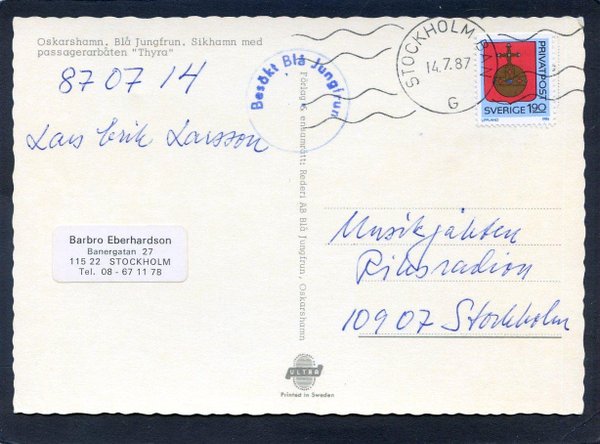 Oskarshamn. Blå Jungfrun. Sikhamn med
passagerarbåten "Thyra"
87 07 14
Lars Erik Larsson
Barbro Eberhardson
Banergatan 27
115 22 STOCKHOLM
Tel. 08 - 67 11 78
Besökt Blå Jungfrun
Förlag & ensamrätt: Rederi AB Blå Jungfrun, Oskarshamn
STOCKHOLM BAN
14.7.87
G
PRIVATPOST
SVERIGE 1.90
UPPLAND
Musikjakten
Riksradion
10907 Stockholm
ULTRA
Printed in Sweden